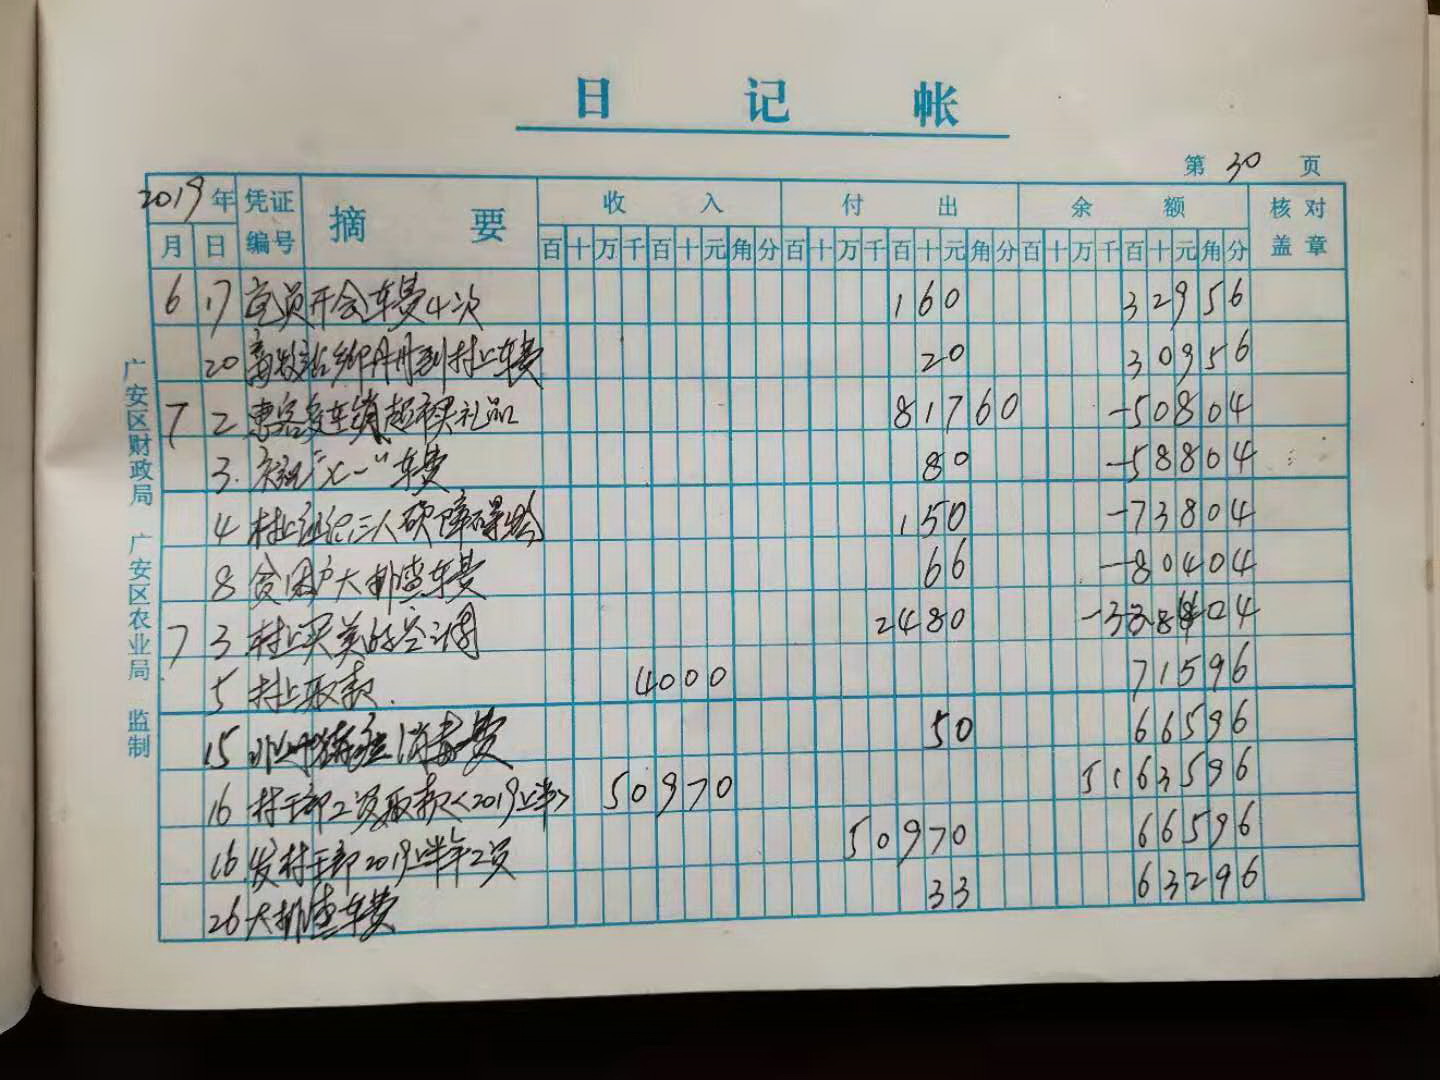 日记帐
第 30 页
2019年 凭证编号 摘要 收入 付出 余额 核对盖章
月 日 百十万千百十元角分 百十万千百十元角分 百十万千百十元角分
6 17 党员开会车费4次 160 32956
20 畜牧站 到村上车费 20 30956
7 2 惠客多车锁超市买礼品 81760 -50804
3. "七一"车费 80 -58804
4 村上 三人砍障 150 -73804
8 贫困户大排查车费 66 -80404
7 3 村上买美的空调 2480 -328404
5 村上取款. 4000 71596
15 非洲猪瘟消毒费 50 66596
16 村干部工资取款<2019上半> 50970 5163596
16 发村干部2019上半年工资 50970 66596
26 大排查车费 33 63296
广安区财政局 广安区农业局 监制